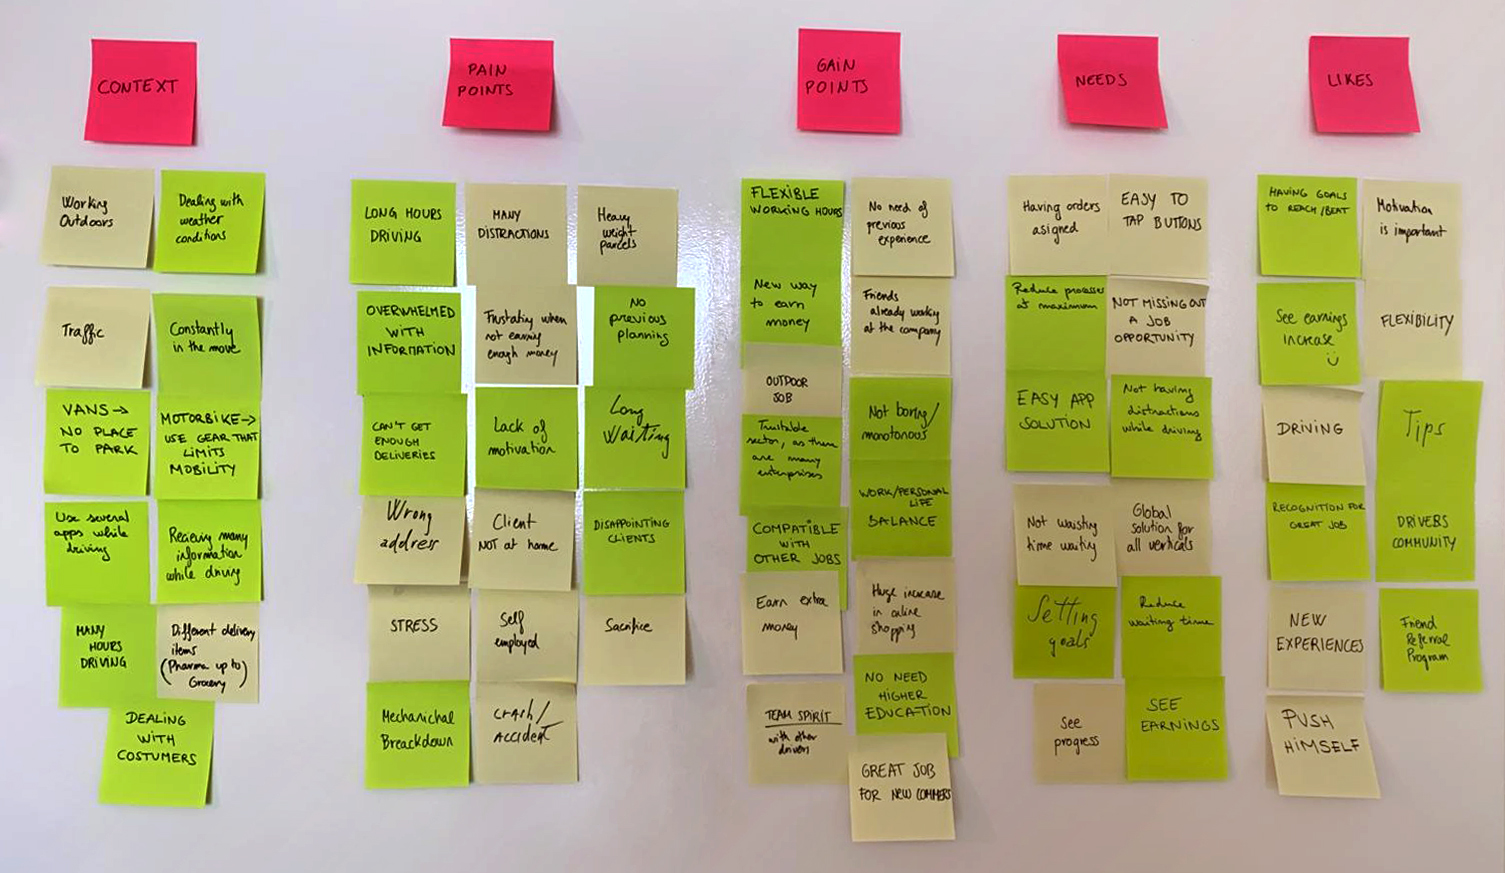 CONTEXT
Working
Outdoors
Dealing with
weather
conditions
Traffic
Constantly
in the move
VANS →
NO PLACE
TO PARK
MOTORBIKE →
USE GEAR THAT
LIMITS
MOBILITY
Use several
apps while
driving
Recieving many
information
while driving
MANY
HOURS
DRIVING
Different delivery
items
(Pharma up to)
Grocery
DEALING
WITH
COSTUMERS
PAIN
POINTS
LONG HOURS
DRIVING
MANY
DISTRACTIONS
Heavy
weight
parcels
OVERWHELMED
WITH
INFORMATION
Frustrating when
not earning
enough money
No
previous
planning
CAN'T GET
ENOUGH
DELIVERIES
Lack of
motivation
Long
Waiting
Wrong
address
Client
NOT at home
DISAPPOINTING
CLIENTS
STRESS
Self
employed
Sacrifice
Mechanichal
Breackdown
CRASH/
ACCIDENT
GAIN
POINTS
FLEXIBLE
WORKING HOURS
No need of
previous
experience
New way
to earn
money
Friends
already working
at the company
OUTDOOR
JOB
Not boring/
monotonous
sector, as there
are many
enterprises
WORK/PERSONAL
LIFE
BALANCE
COMPATIBLE
WITH
OTHER JOBS
Earn extra
money
Huge increase
in online
shopping
NO NEED
HIGHER
EDUCATION
TEAM SPIRIT
with other
drivers
GREAT JOB
FOR NEW COMMERS
NEEDS
Having orders
asigned
EASY TO
TAP BUTTONS
Reduce processes
at maximum
NOT MISSING OUT
A JOB
OPPORTUNITY
EASY APP
SOLUTION
Not having
distractions
while driving
Not waisting
time waiting
Global
solution for
all verticals
Setting
goals
Reduce
waiting time
See
progress
SEE
EARNINGS
LIKES
HAVING GOALS
TO REACH/BEAT
Motivation
is important
See earnings
increase
FLEXIBILITY
DRIVING
Tips
RECOGNITION FOR
GREAT JOB
DRIVERS
COMMUNITY
NEW
EXPERIENCES
Friend
Referral
Program
PUSH
HIMSELF